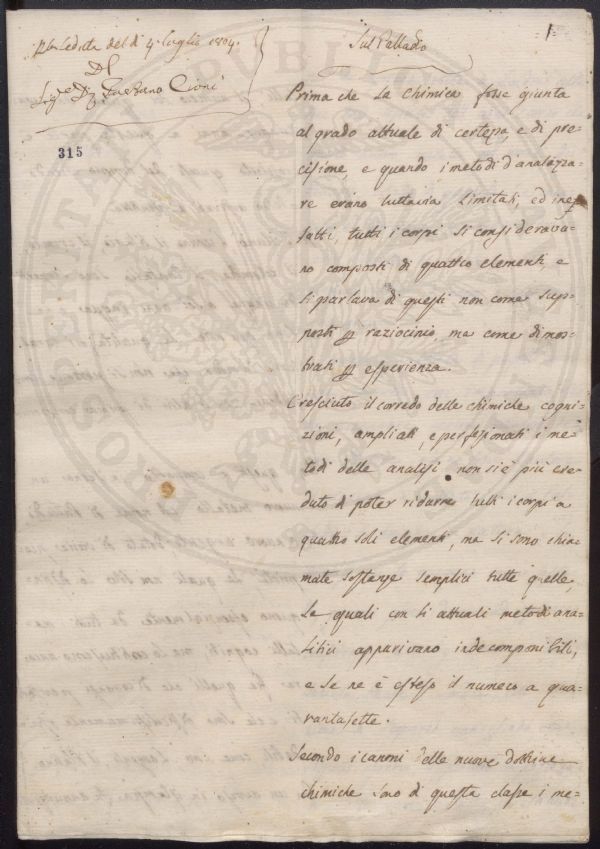 1
Letta del dì 4. Luglio 1804.
Del
Sig.e D. Gaetano Cioni
315
Sul Palladio
Prima che la chimica fosse giunta
al grado attuale di certezza, e di pre-
cisione, e quando i metodi d'analizza-
re erano tuttavia limitati, ed inesa-
satti, tutti i corpi si considerava-
no composti di quattro elementi, e
si parlava di questi non come sup-
posti per raziocinio, ma come dimos-
trati per esperienza.
Cresciuto il corredo delle chimiche cogni-
zioni, ampliati, e perfezionati i me-
todi delle analisi non si è più cre-
duto di poter ridurre tutti i corpi a
quattro soli elementi, ma si sono chia-
mate sostanze semplici tutte quelle,
le quali con li attuali metodi ana-
litici apparivano indecomponibili,
e se ne è esteso il numero a qua-
rantasette.
Secondo i canoni delle nuove dottrine
chimiche sono di questa classe i me-